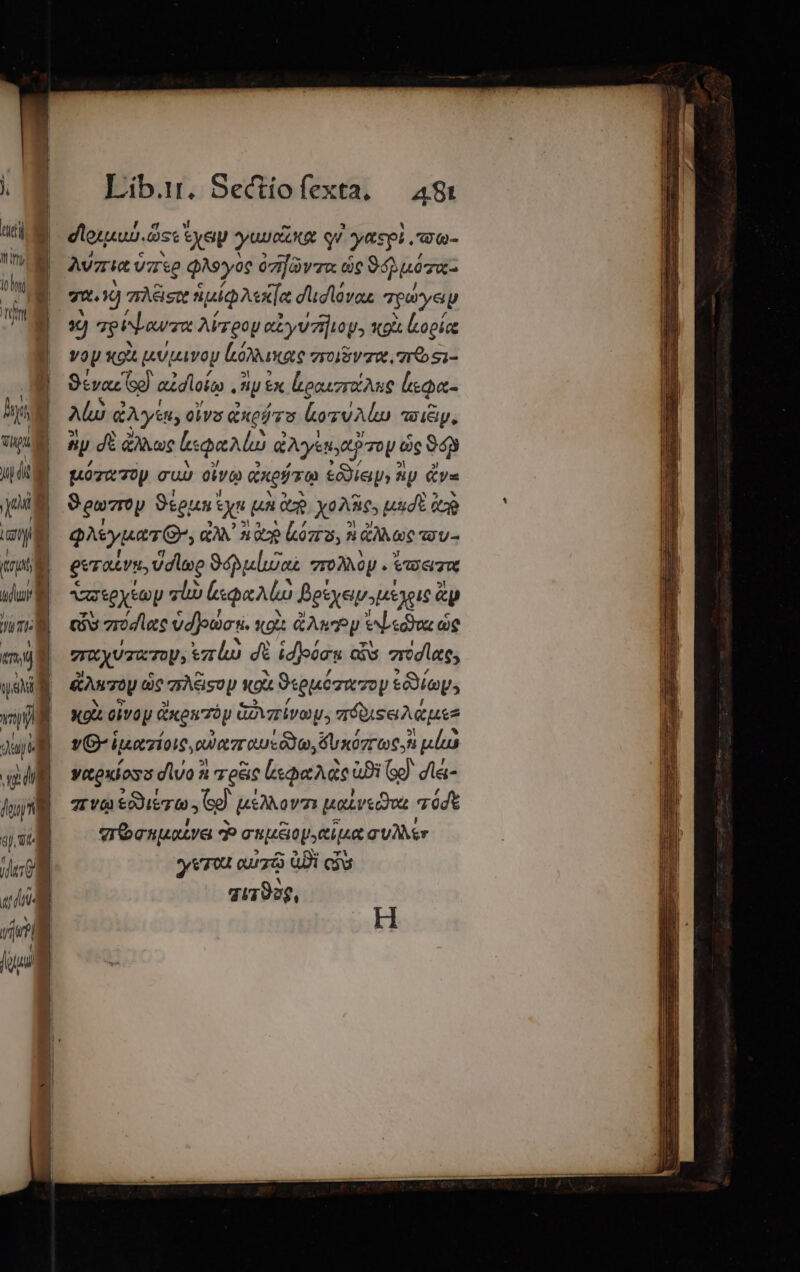 Lib.II. Sectio sexta, 481
διδυμω. ὥστε ἔχειν γυναῖκα ἐν γαστρὶ, πω-
λύπια ὑπὲρ φλογὸς ὀπτῶντα ὡς θερμότα-
τα. καὶ πλεῖστα ἡμίφλεκτα διδόναι τρώγειν
καὶ τρίψαντα λίτρον αἰγύπτιον, καὶ κορία
νον καὶ κύμινον κόλλικας ποιεῦντα, προστι-
θέναι τῷ αἰδοίῳ, ἢν ἐκ κραιπάλης κεφα-
λὴν ἀλγέῃ, οἴνου ἀκρήτου κοτύλην πιεῖν,
ἢν δὲ ἄλλως κεφαλὴν ἀλγέῃ, ἄρτον ὡς θερ
μότατον σὺν οἴνῳ ἀκρήτῳ ἐσθίειν, ἢν ἄν-
θρωπον θέρμη ἔχῃ μὴ ἀπὸ χολῆς, μηδὲ ἀπὸ
φλέγματος, ἀλλ' ἢ ἀπὸ κόπου, ἢ ἄλλως πυ-
ρεταίνῃ, ὕδωρ θερμῆναι πολλὸν. ἔπειτα
ὑπερχέων τὴν κεφαλὴν βρέχειν, μέχρις ἂν
τοὺς πόδας ὑδρώσῃ. καὶ ἄλητον ἑψεῖσθαι ὡς
παχύτατον, ἐπὴν δὲ ἱδρώσῃ τοὺς πόδας,
ἄλητον ὡς πλεῖστον καὶ θερμότατον ἐσθίων,
καὶ οἶνον ἄκρητον ἐπιπίνων, περιστειλάμε-
νος ἱματίοις, ἀναπαυέσθω, εὐκόπως, ἢ μὲν
ναρκίσσου δύο ἢ τρεῖς κεφαλὰς ἐπὶ τῷ δεί-
πνῳ ἐσθιέτω, τῷ μέλλοντι μαίνεσθαι τόδε
προσημαίνει τὸ σημεῖον, αἷμα συλλέ-
γεται αὐτῷ ἐπὶ τοὺς
τιτθοὺς,
Η